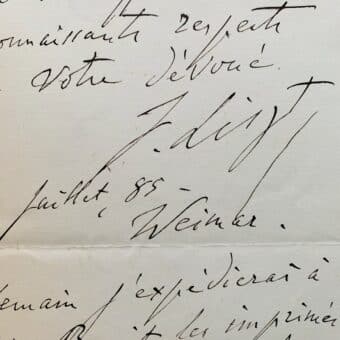 connaissants respects
votre dévoué
F. Liszt
Juillet, 85 -
Weimar.
demain j'expédierai à
les imprimés